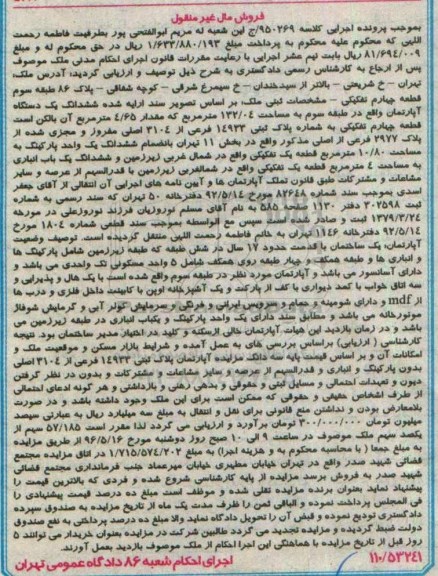 فروش مال غیر منقول
بموجب پرونده اجرایی کلاسه ۹۵۰۲۶۹/ج این شعبه له مریم ابوالفتحی پور بطرفیت فاطمه رحمت
اللهی که محکوم علیه محکوم به پرداخت مبلغ ۱/۶۳۳/۸۸۰/۱۹۳ ریال در حق محکوم له و مبلغ
۸۱/۶۹۴/۰۰۹ ریال بابت نیم عشر اجرایی با رعایت مقررات قانون اجرای احکام مدنی ملک موصوف
پس از ارجاع به کارشناس رسمی دادگستری به شرح ذیل توصیف و ارزیابی گردید: آدرس ملک:
تهران – خ شریعتی – بالاتر از سیدخندان – خ سیمرغ شرقی – کوچه شفاقی – پلاک ۸۶ طبقه سوم
قطعه چهارم تفکیکی – مشخصات ثبتی ملک: بر اساس تصویر سند ارایه شده ششدانگ یک دستگاه
آپارتمان واقع در طبقه سوم به مساحت ۱۳۲/۰۴ مترمربع که مقدار ۴/۶۵ مترمربع آن بالکن است
قطعه چهارم تفکیکی به شماره پلاک ثبتی ۱۴۹۳۳ فرعی از ۳۱۰۴ اصلی مفروز و مجزی شده از
۲۹۷۷ فرعی از اصلی مذکور واقع در بخش ۱۱ تهران بانضمام ششدانگ یک واحد پارکینگ به
مساحت ۱۰/۸۰ مترمربع قطعه یک تفکیکی واقع در شمال غربی زیرزمین و ششدانگ یک باب انباری
به مساحت ۴ مترمربع قطعه یک تفکیکی واقع در شمالغربی زیرزمین با قدرالسهم از عرصه و سایر
مشاعات و مشترکات طبق قانون تملک آپارتمان ها و آیین نامه های اجرایی آن انتقالی از آقای جعفر
اسدی بموجب سند شماره ۸۲۶۴۸ مورخ ۹۲/۵/۱۴ دفترخانه ۵۰ تهران که سند رسمی به شماره
ثبت ۳۰۲۵۹۸ دفتر ۱۱۳۰ صفحه ۵۸۵ به نام آقای مسلم نوروزیان فرزند نوروزعلی در مورخه
۱۳۷۹/۳/۲۴ ثبت و صادر شده است سپس مع الواسطه بموجب سند قطعی شماره ۱۸۰۴ مورخ
۹۲/۵/۱۴ دفترخانه ۱۱۴۶ تهران به خانم فاطمه رحمت اللهی منتقل گردیده است. توصیف وضعیت
آپارتمان: یک ساختمان با قدمت حدود ۱۷ سال در شش طبقه که طبقه زیرزمین شامل پارکینگ ها
و انباری ها و طبقه همکف و چهار طبقه روی همکف شامل ۵ واحد مسکونی تک واحدی می باشد و
دارای آسانسور می باشد و آپارتمان مورد نظر در طبقه سوم واقع شده است با یک هال و پذیرایی و
سه اتاق خواب با کمد دیواری با کف از پارکت و یک آشپزخانه اوپن با کابینت داخل فلزی و درب ها
از mdf و دارای شومینه و حمام و سرویس ایرانی و فرنگی و سرمایش کولر آبی و گرمایش شوفاژ
موتورخانه می باشد و مطابق سند دارای یک واحد پارکینگ و یکباب انباری در طبقه زیرزمین می
باشد و در زمان بازدید این هیات آپارتمان خالی ازسکنه و کلید در اختیار مدیر ساختمان بود. نتیجه
کارشناسی (ارزیابی) براساس بررسی های به عمل آمده و شرایط بازار مسکن و موقعیت ملک و
امکانات آن و بر اساس قیمت پایه سه دانگ مزایده آپارتمان پلاک ثبتی ۱۴۹۳۳ فرعی از ۳۱۰۴ اصلی
بدون پارکینگ و انباری و قدرالسهم از عرصه و سایر مشاعات و مشترکات و بدون در نظر گرفتن
دیون و تعهدات احتمالی و مسایل ثبتی و حقوقی و بدهی رهنی و بازداشتی و هر گونه ادعای احتمالی
از طرف اشخاص حقیقی و حقوقی که ممکن است برای این ملک وجود داشته باشد و در صورت
بلامعارض بودن و نداشتن منع قانونی برای نقل و انتقال به مبلغ سه میلیارد ریال به عبارتی سیصد
میلیون تومان ۳۰۰/۰۰۰/۰۰۰ تومان برآورد و ارزیابی می گردد لذا مقرر است ۵۷/۱۸۵ سهم از
یکصد سهم ملک موصوف در ساعت ۹ الی ۱۰ صبح روز دوشنبه مورخ ۹۶/۵/۱۶ از طریق مزایده
به مبلغ جمعا (با محاسبه محکوم به و هزینه اجرا) به مبلغ ۱/۷۱۵/۵۷۴/۲۰۲ در اتاق مزایده مجتمع
قضائی شهید صدر واقع در تهران خیابان مطهری خیابان میرعماد جنب فرمانداری مجتمع قضائی
شهید صدر به فروش برسد مزایده از پایه کارشناسی شروع شده و فردی که بالاترین قیمت را
پیشنهاد نماید بعنوان برنده مزایده تلقی شده و موظف است مبلغ ده درصد قیمت پیشنهادی را
فی المجلس پرداخت نموده و الباقی ثمن را ظرف مدت یک ماه از تاریخ مزایده به صندوق سپرده
دادگستری تودیع نموده و فیش آن را تحویل دادگاه نماید والا مبلغ ده درصد پرداختی به نفع صندوق
دولت ضبط گردیده و مزایده تجدید می گردد طالبین شرکت در مزایده بعنوان خریدار می توانند ۵
روز قبل از تاریخ مزایده با هماهنگی این اجرا احکام از ملک موصوف بازدید بعمل آورند.
۱۱۰/۵۳۲۴۱ اجرای احکام شعبه ۸۶ دادگاه عمومی تهران